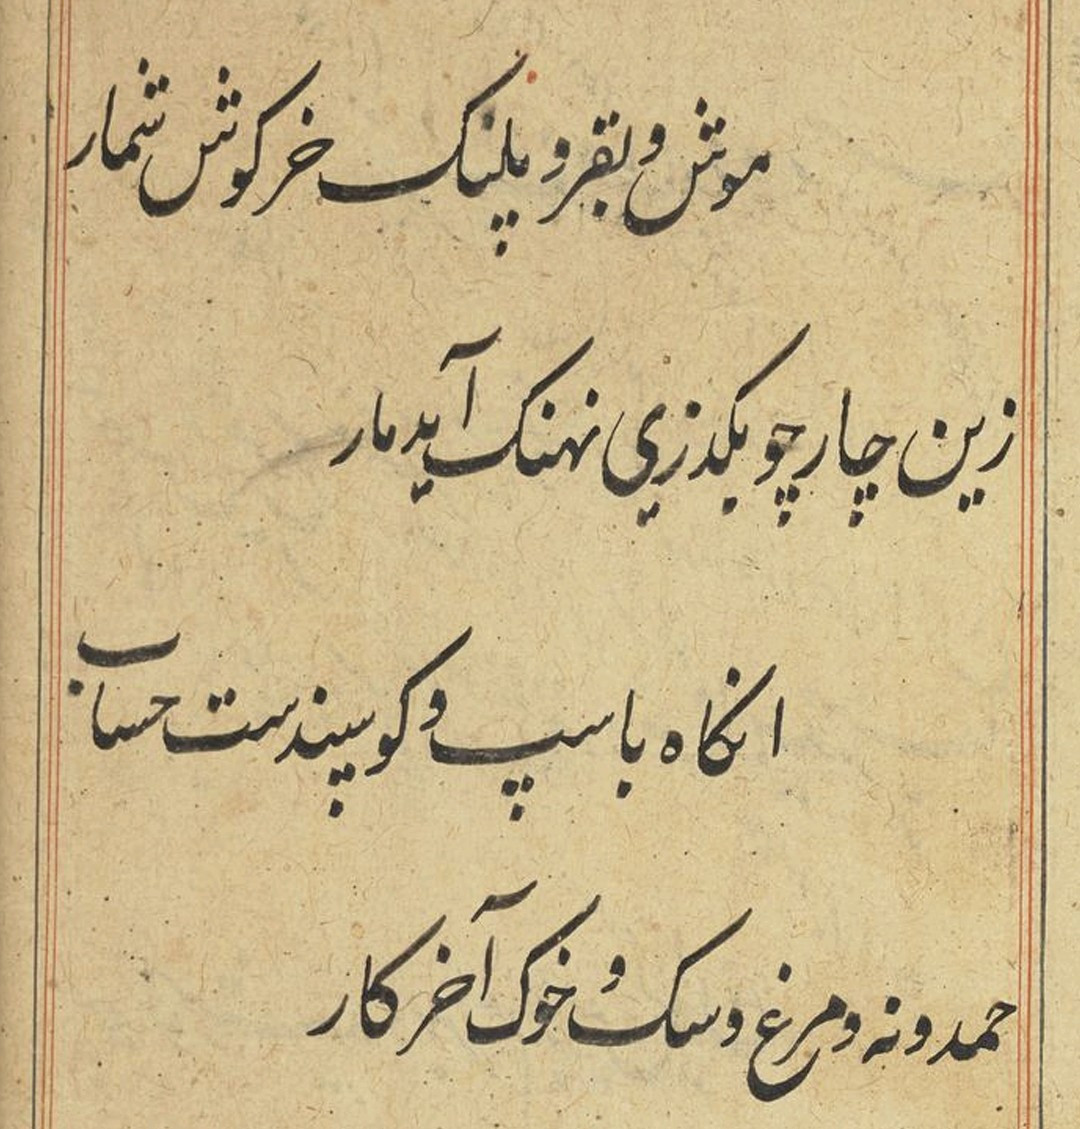 موش و بقر و پلنک خرکوش شمار
زین چار چو بکذزي نهنک آید مار
انکاه باسپ و کوسپندست حساب
حمدونه و مرغ و سک و خوک آخر کار